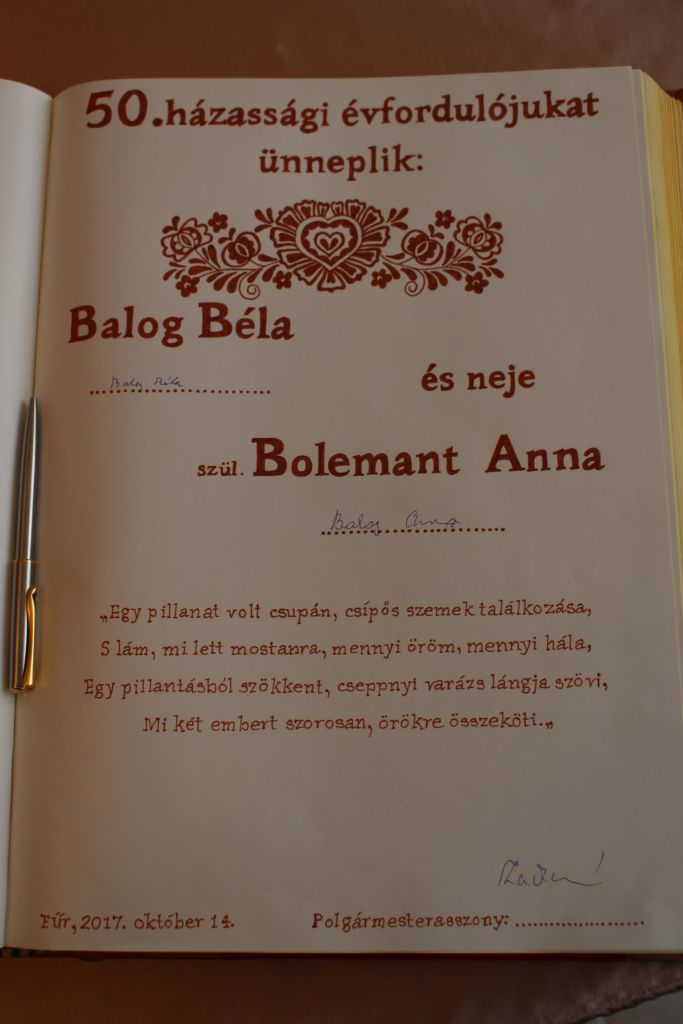 50.házassági évfordulójukat
ünneplik:
Balog Béla
Balog Béla
és neje
szül. Bolemant Anna
Balog Anna
„Egy pillanat volt csupán, csípős szemek találkozása,
S lám, mi lett mostanra, mennyi öröm, mennyi hála,
Egy pillantásból szökkent, cseppnyi varázs lángja szövi,
Mi két embert szorosan, örökre összeköti.„
Fűr, 2017. október 14.
Polgármesterasszony: